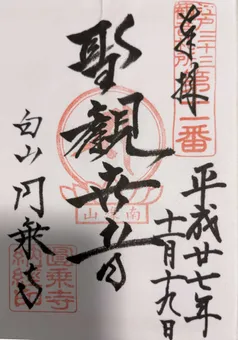 奉拝
十一番
平成廿七年
十二月十九日
聖観世音
白山 円乗寺
南
山
圓乗寺
納経印